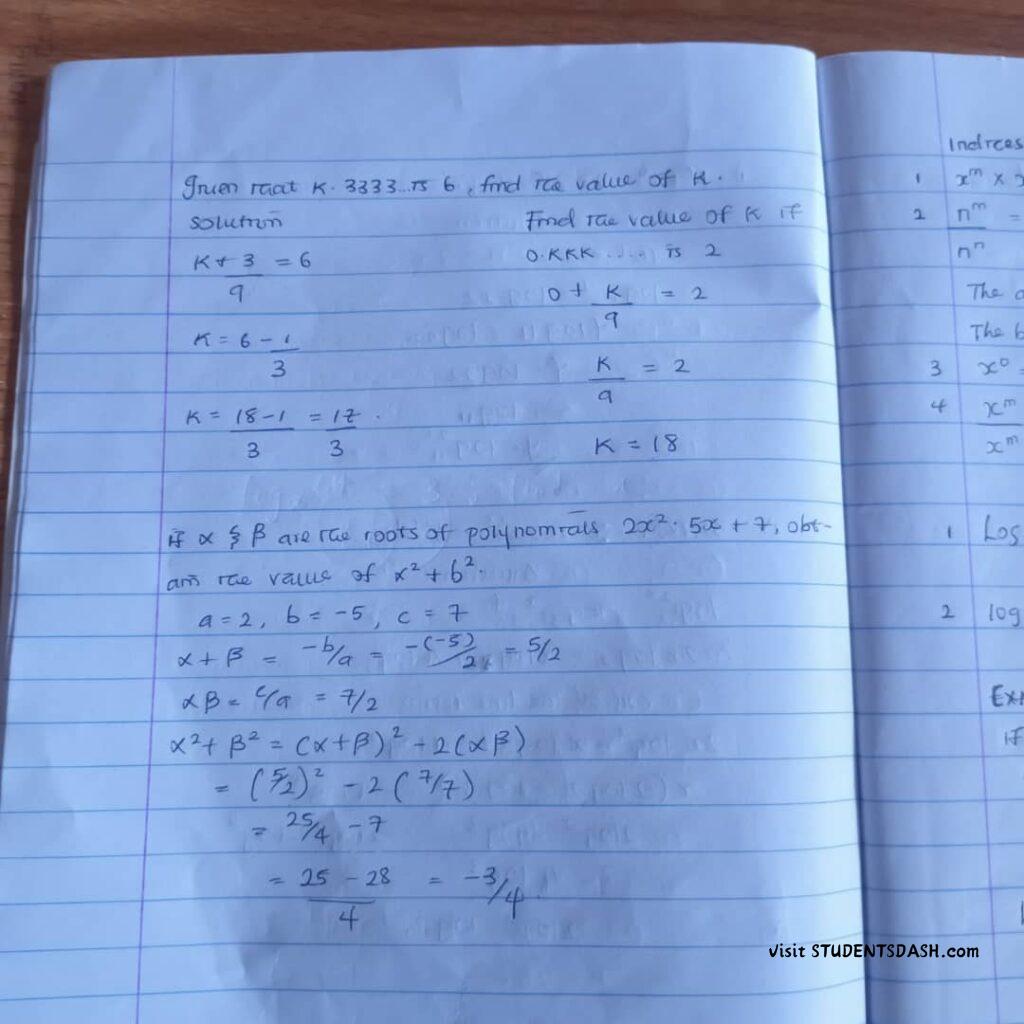 Given that K.3333... is 6, find the value of K.
solution
K + 3/9 = 6
K = 6 - 1/3
K = 18-1/3 = 17/3.
Find the value of K if
0.KKK .... is 2
0 + K/9 = 2
K/9 = 2
K = 18
if α & β are the roots of polynomials 2x²-5x+7, obt-
ain the value of α²+b².
a=2, b=-5, c=7
α+β = -b/a = -(-5)/2 = 5/2
αβ = c/a = 7/2
α²+β² = (α+β)² - 2(αβ)
= (5/2)² - 2(7/7)
= 25/4 - 7
= 25-28/4 = -3/4.
Indices
1 x^m ×
2 n^m/n^n =
The
The
3 x^0 =
4 x^m/x^m
1 Log
2 log
if
visit STUDENTSDASH.com